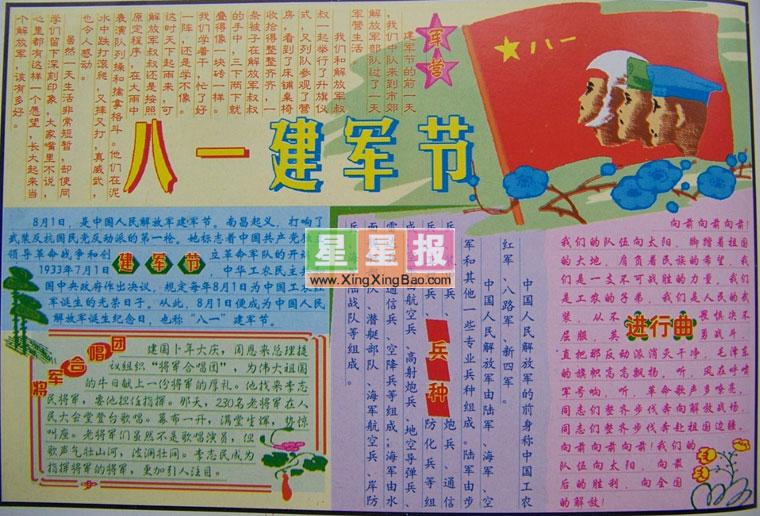 军营
建军节的前一天
我们中队来到市郊
解放军部队过了一天
军营生活
我们和解放军叔
叔一起举行了升旗仪
式,又列队参观了营
房,看到了床铺桌椅
收拾得整整齐齐,一
条被子在解放军叔叔
的手中,三下两下就
叠得像一块砖一样。
我们学着干,忙了好
一阵,还是学不像。
这时天下起雨来,可
解放军叔叔还是按照
原定程序,在大雨中
表演队列操和擒拿格斗。他们在泥
水中跌打滚爬,又摔又打,真威武,
也令人感动。
虽然一天生活非常短暂,却使同
学们留下深刻印象,大家嘴里不说,
心里都有这样一个愿望,长大起来当
个解放军,该有多好。
八一
八一建军节
8月1日,是中国人民解放军建军节。南昌起义,打响了
武装反抗国民党反动派的第一枪。她标志着中国共产党独
领导革命战争和创 立革命军队的开
1933年7月1 中华工农民主
国中央政府作出决议,规定每年8月1日为中国工农
军诞生的光荣日子。从此,8月1日便成为中国人民
解放军诞生纪念日,也称“八一”建军节。
建军节
星星报
www.XingXingBao.com
将军合唱团
建国十年大庆,周恩来总理提
议组织“将军合唱团”,为伟大祖国
的生日献上一份将军的厚礼。他找来李志
民将军,要他担任指挥。那天,230名老将军在人
民大会堂登台歌唱。幕布一开,满堂生辉,皆惊
叫座。老将军们虽然不是歌唱演员,但
歌声气壮山河,波澜壮阔。李志民成为
指挥将军的将军,更加引人注目。
兵种
中国人民解放军的前身称中国工农
红军、八路军、新四军。
中国人民解放军由陆军、海军、空
军和其他一些专业兵种组成。陆军由步
兵、 炮兵、通信
兵、 防化兵等组
成, 航空兵、高射炮兵、地空导弹兵、
雷 通信兵、空降兵等组成;海军由水
面 队、潜艇部队、海军航空兵、岸防
陆战队等组成。
进行曲
向前向前向前!
我们的队伍向太阳,脚踏着祖国
的大地,肩负着民族的希望,我
们是一支不可战胜的力量,我们
是工农的子弟,我们是人民的武
装,从不 畏惧决不
屈服,英 勇战斗,
直把那反动派消灭干净,毛泽东
的旗帜高高飘扬,听,风在呼啸
军号响,听,革命歌声多嘹亮,
同志们整齐步伐奔向解放战场,
同志们整齐步伐奔赴祖国边疆,
向前向前向前!我们的
队伍向太阳,向最
后的胜利,向全国
的解放!